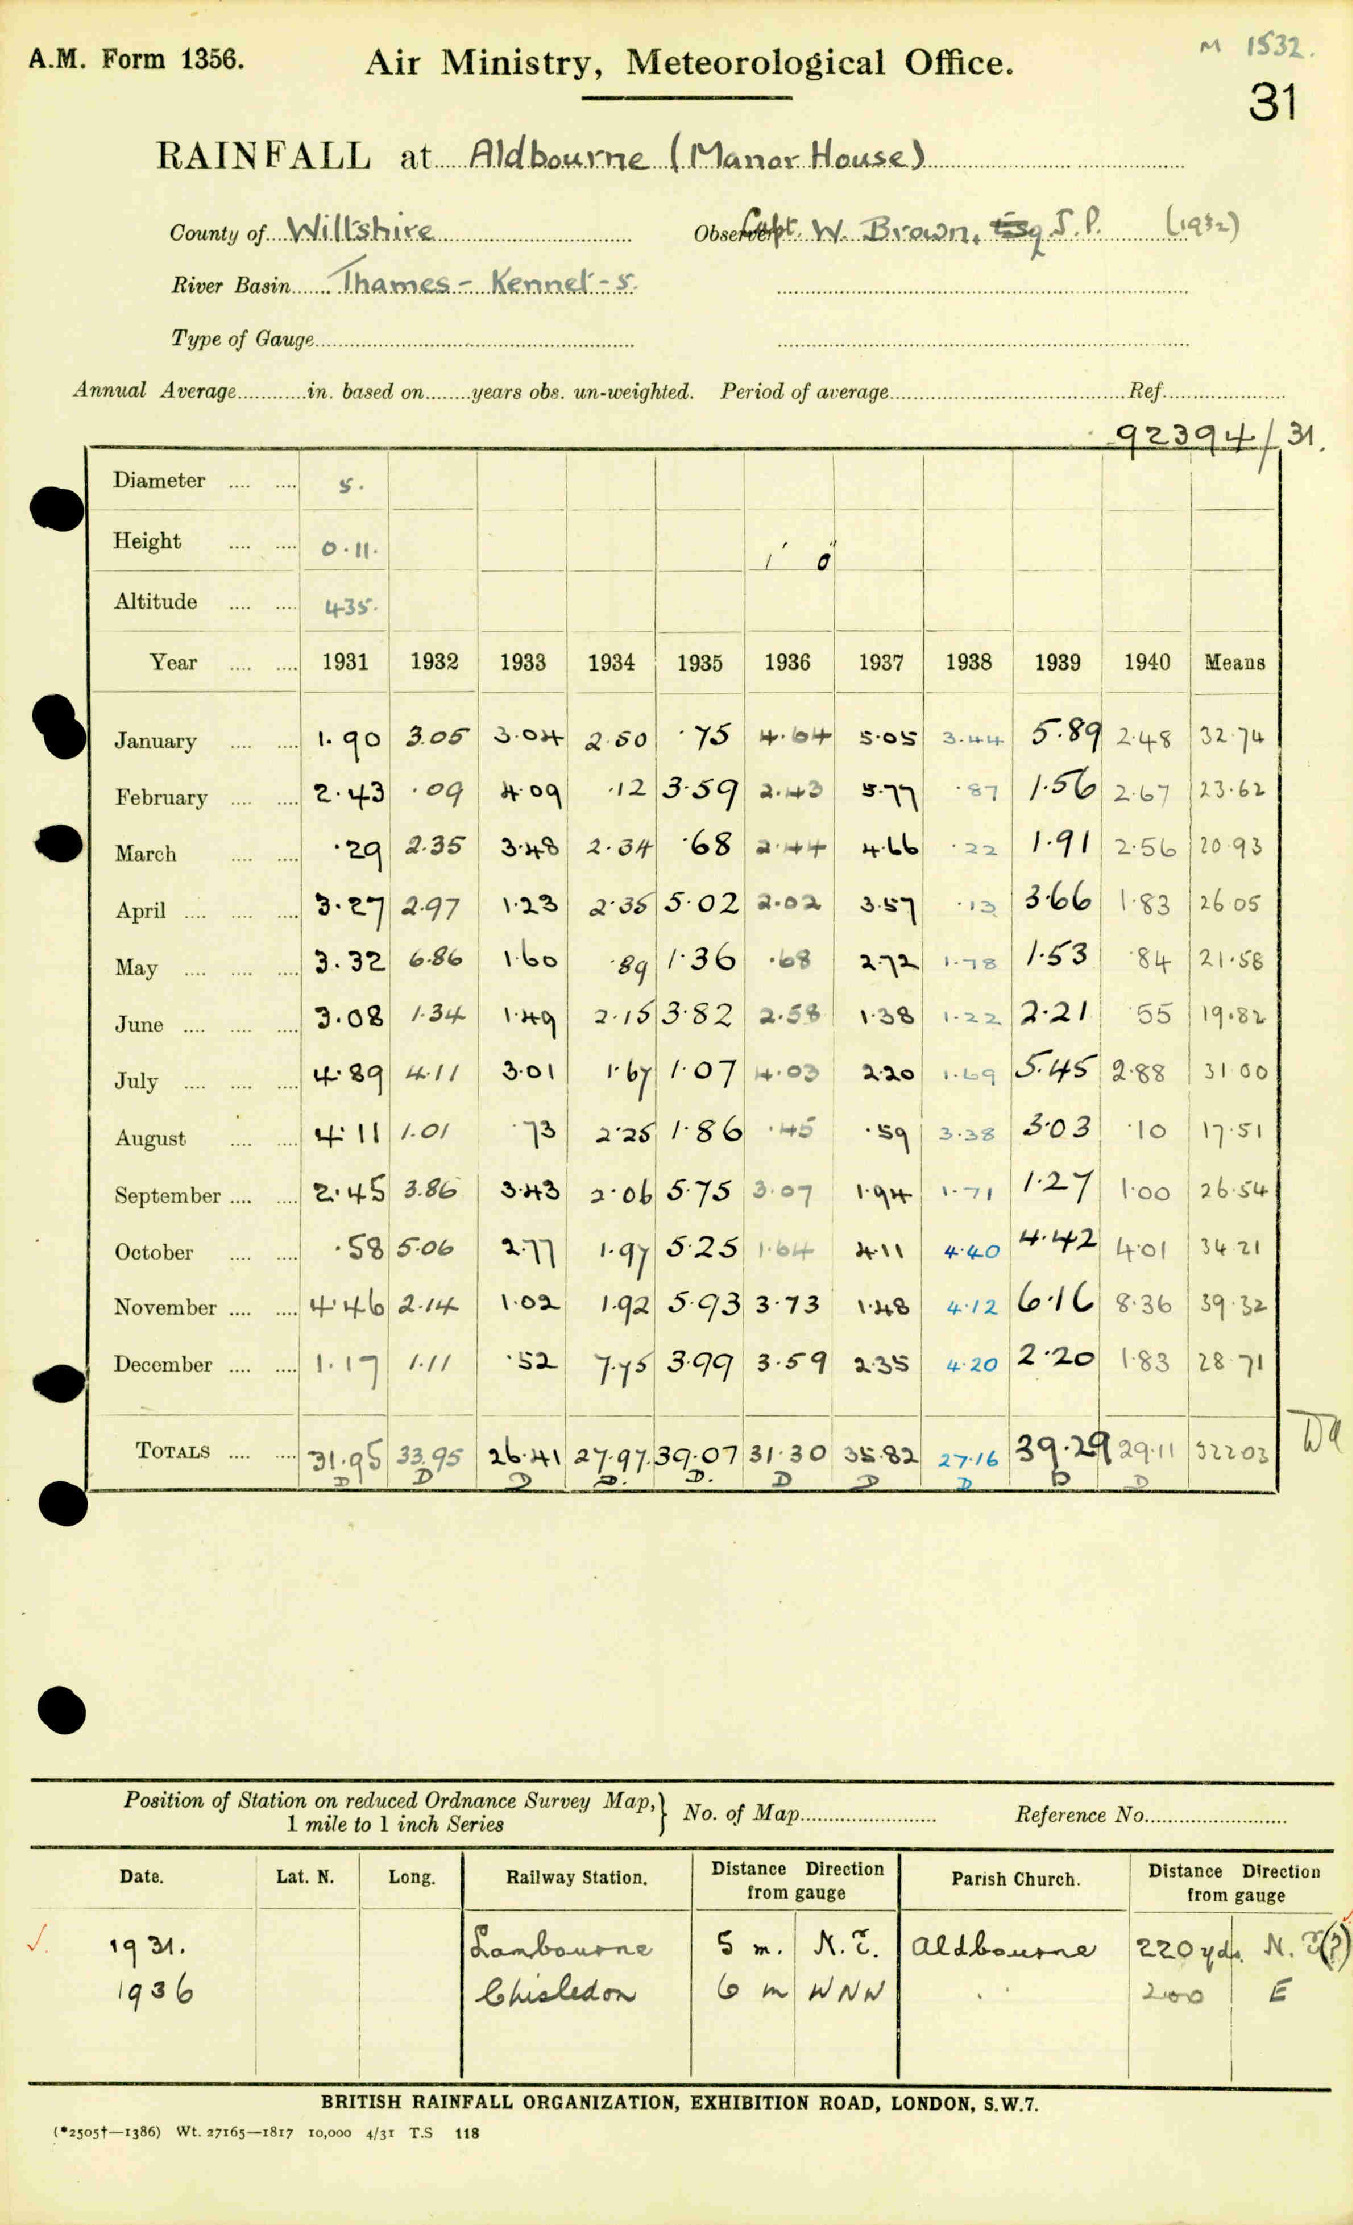 A.M. Form 1356.
Air Ministry, Meteorological Office.
M 1532.
31
RAINFALL at Aldbourne (Manor House)
County of Wiltshire
Observer Capt. W. Brown, Esq J.P. (1932)
River Basin Thames - Kennet - 5.
Type of Gauge
Annual Average in. based on years obs. un-weighted. Period of average Ref.
92394/31.
Diameter 5.
Height 0.11. 1' 0"
Altitude 435.
Year 1931 1932 1933 1934 1935 1936 1937 1938 1939 1940 Means
January 1.90 3.05 3.04 2.50 .75 4.64 5.05 3.44 5.89 2.48 32.74
February 2.43 .09 4.09 .12 3.59 2.43 5.77 .87 1.56 2.67 23.62
March .29 2.35 3.48 2.34 .68 2.44 4.66 .22 1.91 2.56 20.93
April 3.27 2.97 1.23 2.35 5.02 2.02 3.57 .13 3.66 1.83 26 05
May 3.32 6.86 1.60 .89 1.36 .68 2.72 1.78 1.53 .84 21.58
June 3.08 1.34 1.49 2.15 3.82 2.58 1.38 1.22 2.21 55 19.82
July 4.89 4.11 3.01 1.67 1.07 4.03 2.20 1.69 5.45 2.88 31 00
August 4.11 1.01 .73 2.25 1.86 .45 .59 3.38 3.03 .10 17.51
September 2.45 3.86 3.43 2.06 5.75 3.07 1.94 1.71 1.27 1.00 26.54
October .58 5.06 2.77 1.97 5.25 1.64 4.11 4.40 4.42 4.01 34.21
November 4.46 2.14 1.02 1.92 5.93 3.73 1.48 4.12 6.16 8.36 39.32
December 1.17 1.11 .52 7.75 3.99 3.59 2.35 4.20 2.20 1.83 28.71
TOTALS 31.95 33.95 26.41 27.97 39.07 31.30 35.82 27.16 39.29 29.11 32203
D D D D. D. D D D D D
Position of Station on reduced Ordnance Survey Map,
1 mile to 1 inch Series
No. of Map
Reference No.
Date. Lat. N. Long. Railway Station. Distance Direction from gauge Parish Church. Distance Direction from gauge
1931. Lambourne 5 m. N.E. Aldbourne 220 yds. N.E(?)
1936 Chisledon 6 m WNW . . 200 E
BRITISH RAINFALL ORGANIZATION, EXHIBITION ROAD, LONDON, S.W.7.
(*2505†—1386) Wt. 27165—1817 10,000 4/31 T.S 118